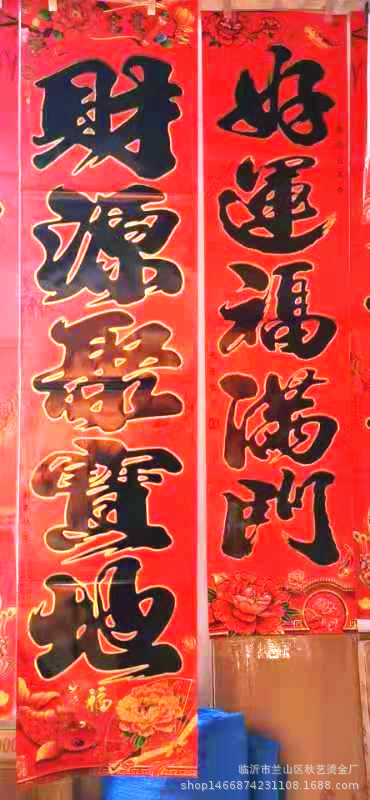 好運福滿門
財源聚寶地
福
临沂市兰山区秋艺烫金厂
shop1466874231108.1688.com